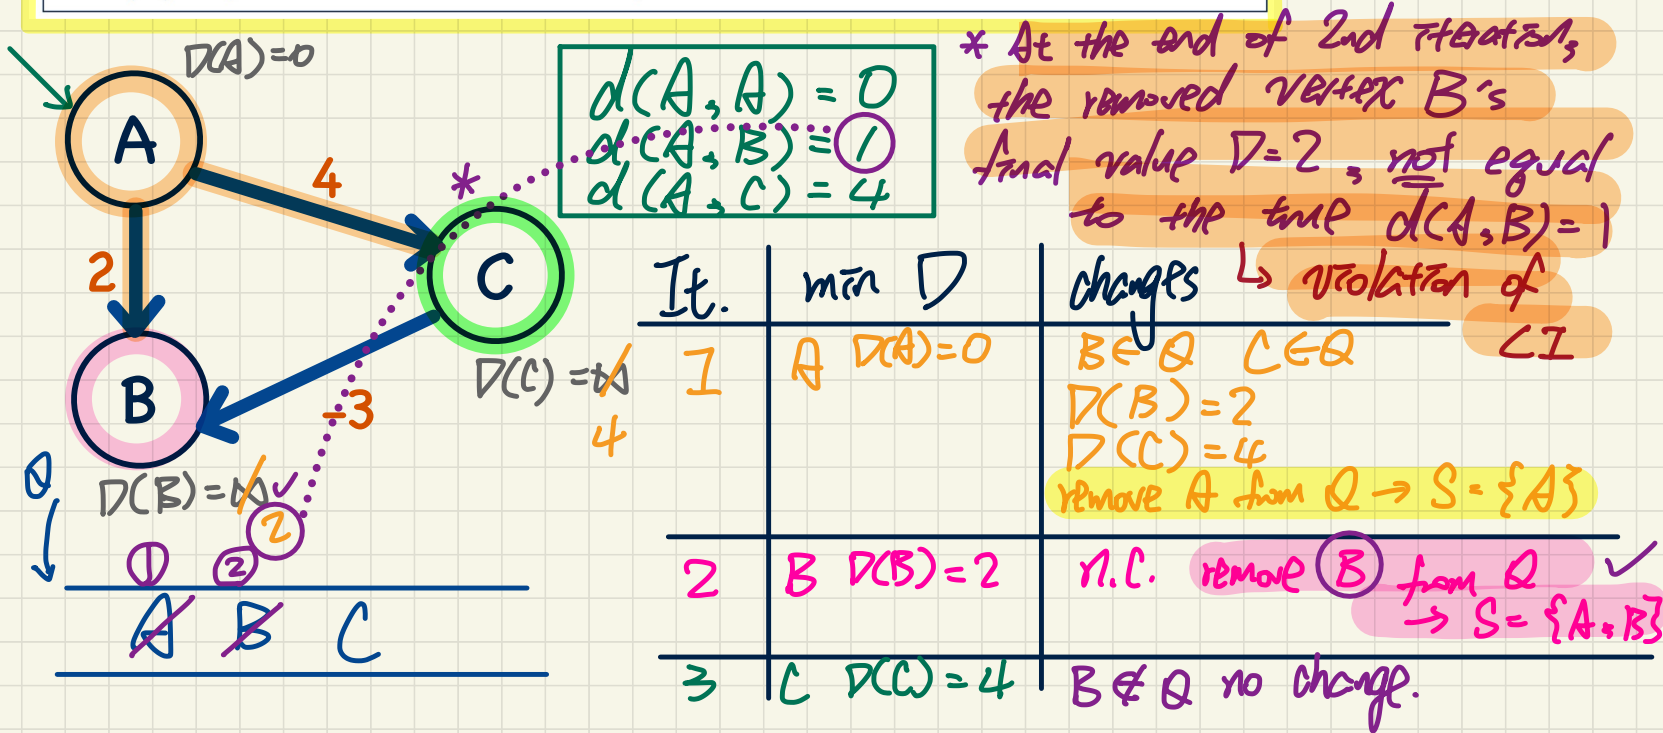 D(A)=0
A
4
2
C
B
-3
D(C)=∞
4
D(B)=∞ ✓
2
Q
① ②
A B C
d(A,A)=0
d(A,B)=1
d(A,C)=4
*
* At the end of 2nd iteration,
the removed vertex B's
final value D=2, not equal
to the true d(A,B)=1
↳ violation of
LI
It. min D changes
1 A D(A)=0 B∈Q C∈Q
D(B)=2
D(C)=4
remove A from Q → S={A}
2 B D(B)=2 n.c. remove B from Q ✓
→ S={A,B}
3 C D(C)=4 B∉Q no change.